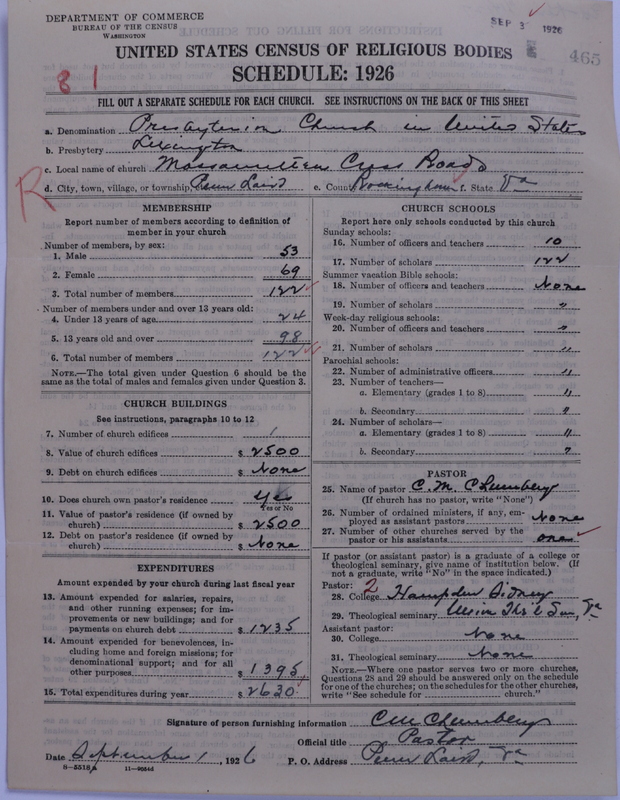 DEPARTMENT OF COMMERCE
BUREAU OF THE CENSUS
WASHINGTON
SEP 3 1926
465
UNITED STATES CENSUS OF RELIGIOUS BODIES
SCHEDULE: 1926
8 1
FILL OUT A SEPARATE SCHEDULE FOR EACH CHURCH. SEE INSTRUCTIONS ON THE BACK OF THIS SHEET
a. Denomination Presbyterian Church in United States
b. Presbytery Lexington
c. Local name of church Massanutten Cross Roads
R
d. City, town, village, or township Penn Laird e. County Rockingham f. State Va
MEMBERSHIP
Report number of members according to definition of
member in your church
Number of members, by sex:
1. Male 53
2. Female 69
3. Total number of members 122
Number of members under and over 13 years old:
4. Under 13 years of age 24
5. 13 years old and over 98
6. Total number of members 122
NOTE.—The total given under Question 6 should be the
same as the total of males and females given under Question 3.
CHURCH BUILDINGS
See instructions, paragraphs 10 to 12
7. Number of church edifices 1
8. Value of church edifices $ 2500
9. Debt on church edifices $ None
10. Does church own pastor's residence Yes
Yes or No
11. Value of pastor's residence (if owned by
church) $ 2500
12. Debt on pastor's residence (if owned by
church) $ None
EXPENDITURES
Amount expended by your church during last fiscal year
13. Amount expended for salaries, repairs,
and other running expenses; for im-
provements or new buildings; and for
payments on church debt $ 1235
14. Amount expended for benevolences, in-
cluding home and foreign missions; for
denominational support; and for all
other purposes $ 1395
15. Total expenditures during year $ 2630
CHURCH SCHOOLS
Report here only schools conducted by this church
Sunday schools:
16. Number of officers and teachers 10
17. Number of scholars 122
Summer vacation Bible schools:
18. Number of officers and teachers None
19. Number of scholars "
Week-day religious schools:
20. Number of officers and teachers "
21. Number of scholars "
Parochial schools:
22. Number of administrative officers "
23. Number of teachers—
a. Elementary (grades 1 to 8) "
b. Secondary "
24. Number of scholars—
a. Elementary (grades 1 to 8) "
b. Secondary "
PASTOR
25. Name of pastor C. M. Chumbley
(If church has no pastor, write "None")
26. Number of ordained ministers, if any, em-
ployed as assistant pastors None
27. Number of other churches served by the
pastor or his assistants one
If pastor (or assistant pastor) is a graduate of a college or
theological seminary, give name of institution below. (If
not a graduate, write "No" in the space indicated.)
Pastor: 2
28. College Hampden Sidney
29. Theological seminary Union Theo'l Sem, Va
Assistant pastor:
30. College None
31. Theological seminary None
NOTE.—Where one pastor serves two or more churches,
Questions 28 and 29 should be answered only on the schedule
for one of the churches; on the schedules for the other churches,
write "See schedule for church."
Signature of person furnishing information CM Chumbley
Official title Pastor
Date September 1, 1926 P. O. Address Penn Laird, Va
8-5518 a 11-9054d